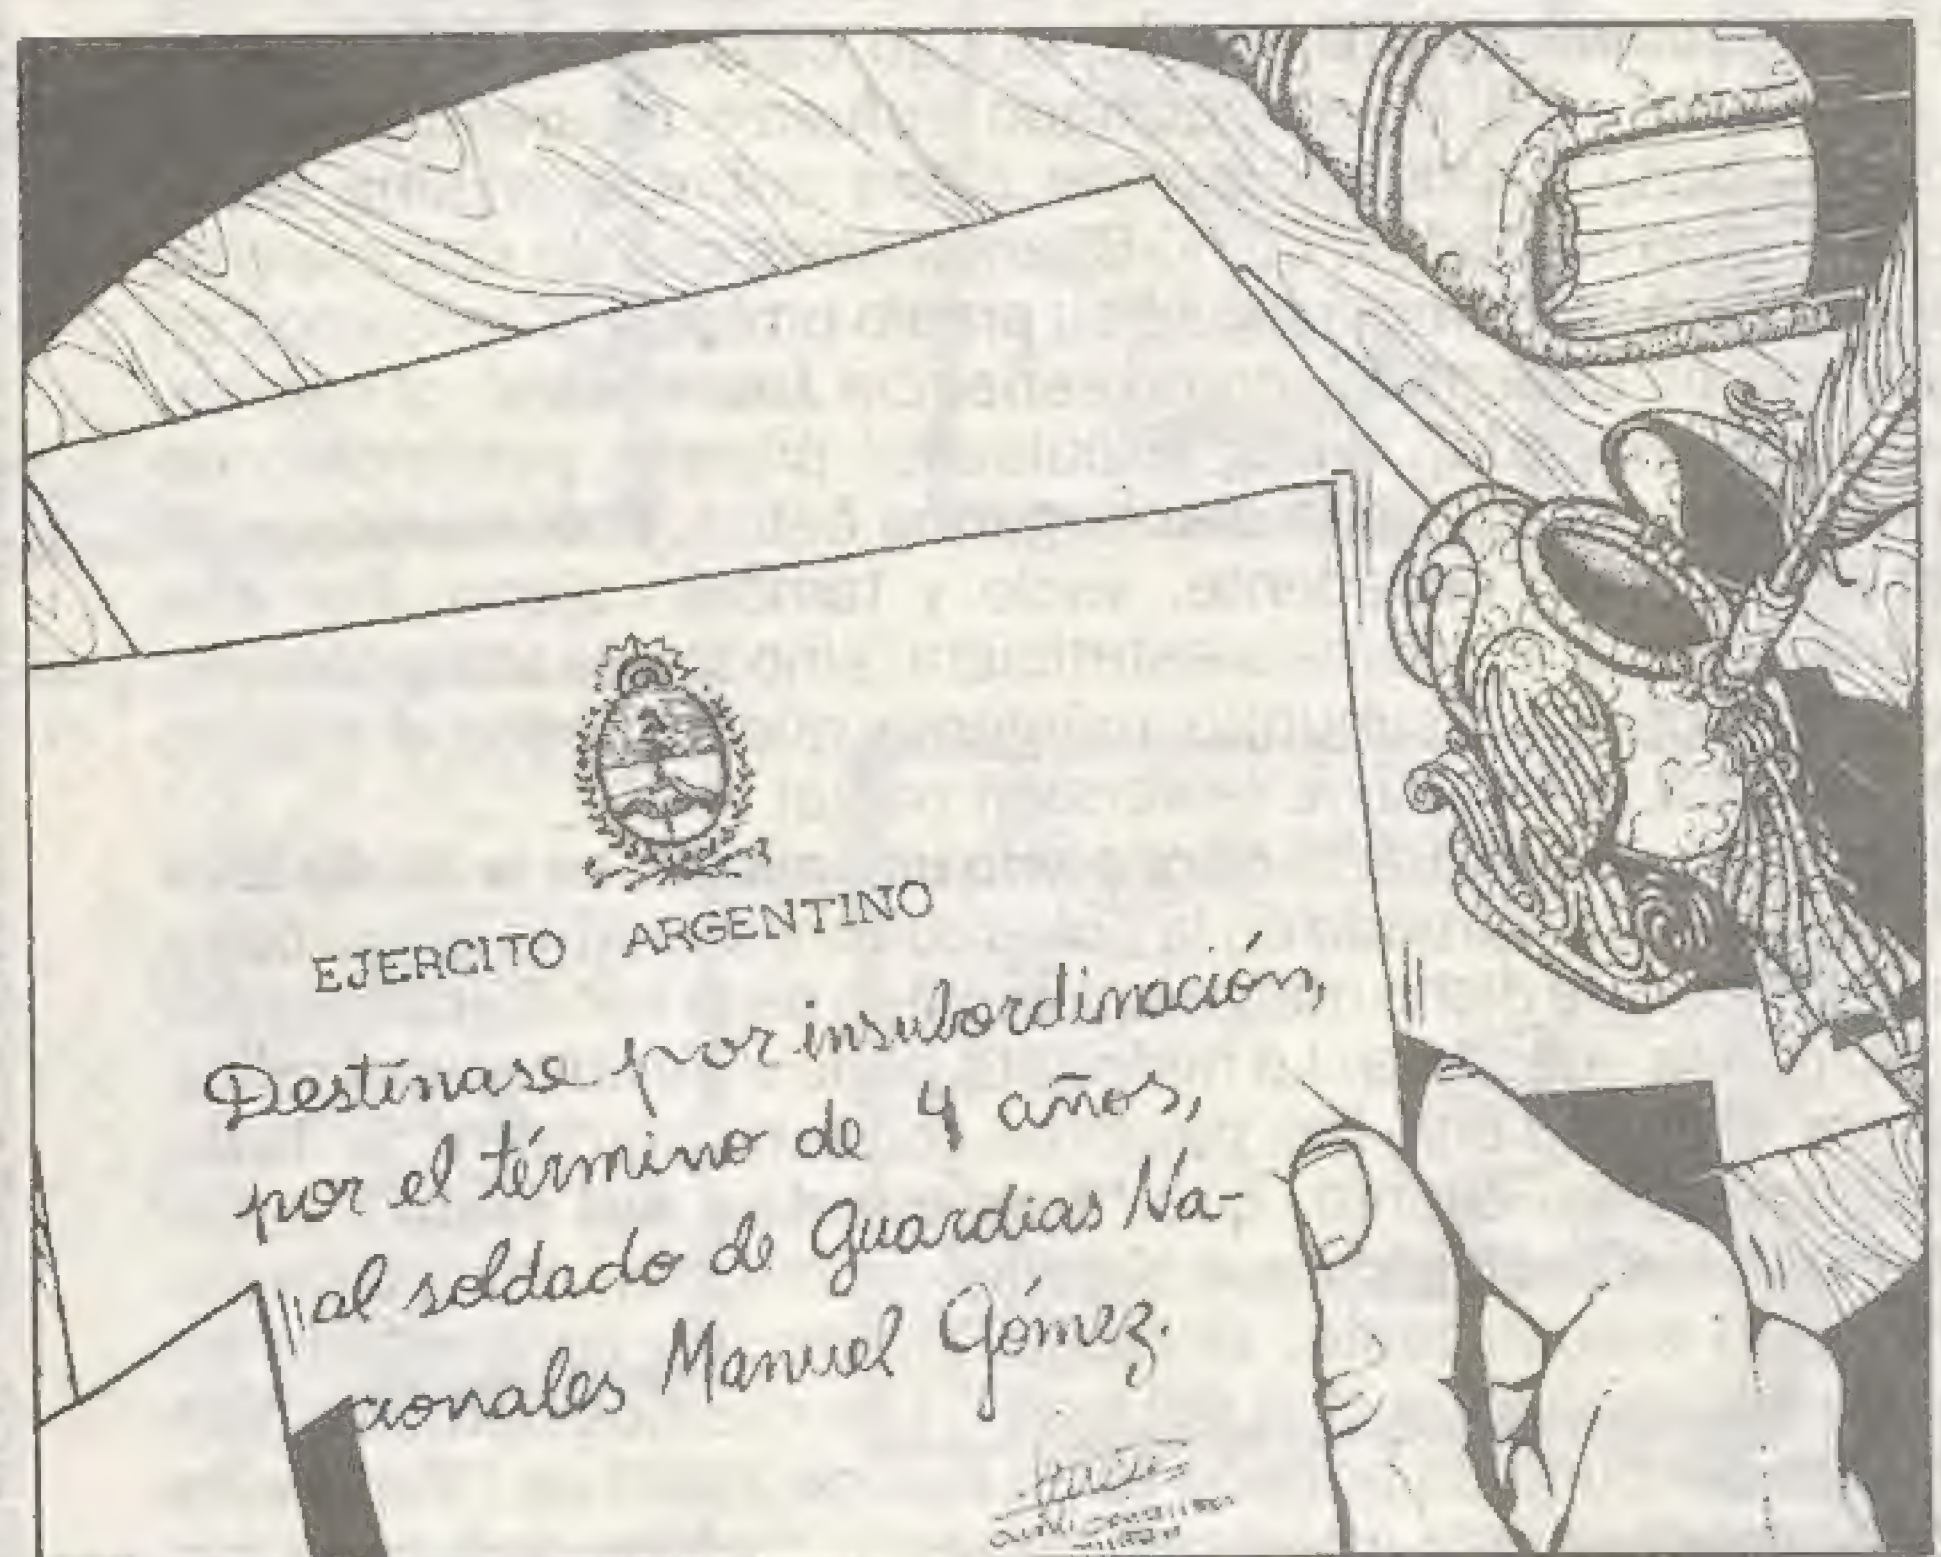 EJERCITO ARGENTINO
Destínase por insubordinación,
por el término de 4 años,
al soldado de Guardias Na-
cionales Manuel Gómez.